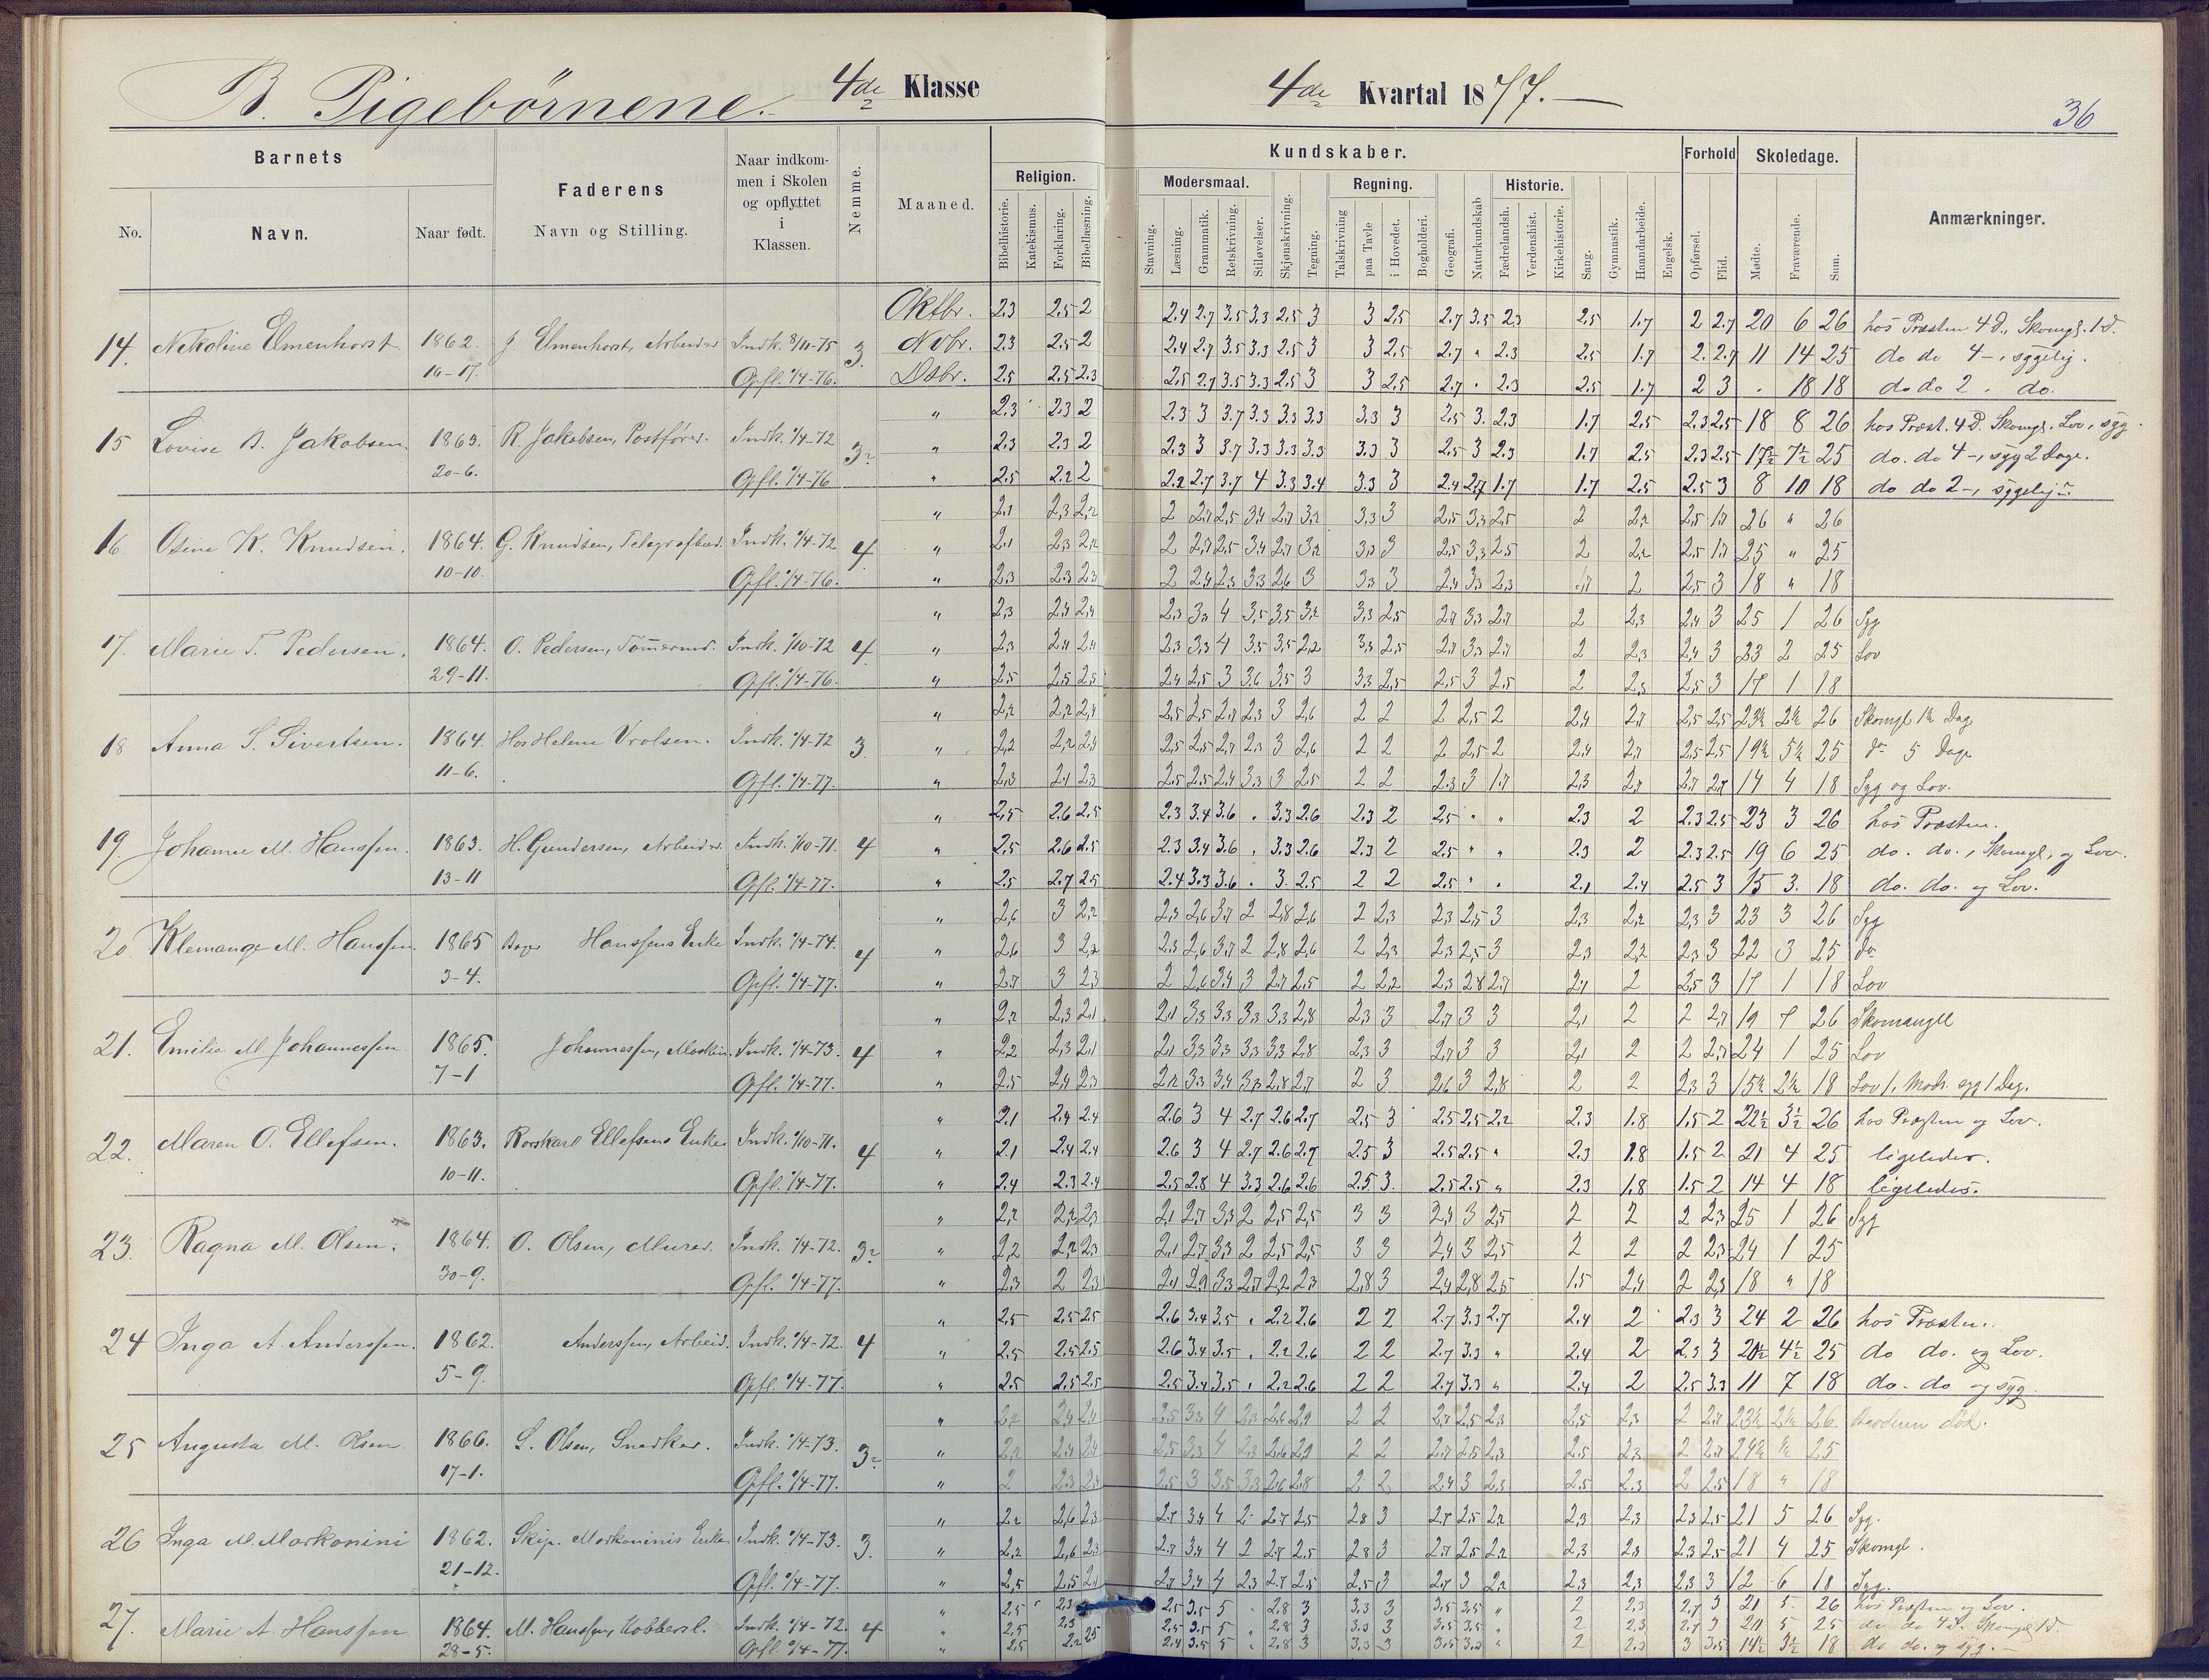 B. Pigebørnene. 4de Klasse
4de Kvartal 1877.
36
Barnets
Faderens
Naar indkommen i Skolen og opflyttet i Klassen.
Nemme.
Maaned.
Kundskaber.
Forhold
Skoledage.
Anmærkninger.
Religion.
Modersmaal.
Regning.
Historie.
No.
Navn.
Naar født.
Navn og Stilling.
Bibelhistorie.
Katekismus.
Forklaring.
Bibellæsning.
Stavning.
Læsning.
Grammatik.
Retskrivning.
Stiløvelser.
Skjønskrivning.
Tegning.
Talskrivning
paa Tavle
i Hovedet.
Bogholderi.
Geografi.
Naturkundskab
Fædrelandsh.
Verdenshist.
Kirkehistorie.
Sang.
Gymnastik.
Haandarbeide.
Engelsk.
Opførsel.
Flid.
Mødte.
Fraværende.
Sum.
Oktbr. 2.3 2.5 2 2.4 2.7 3.5 3.3 2.5 3 3 2.5 2.7 3.5 2.3 2.5 1.7 2 2.7 20 6 26 hos Præsten 4 d., Skomgl. 1 d.
14. Nikoline Elmenhorst. 1862. J. Elmenhorst, Arbeider Indk. 8/11-75 3. Nvbr. 2.3 2.5 2 2.4 2.7 3.5 3.3 2.5 3 3 2.5 2.7 " 2.3 2.5 1.7 2. 2.7 11 14 25 do do 4-, sygelig.
Opfl. 1/4-76. Dsbr. 2.5 2.5 2.3 2.5 2.7 3.5 3.3 2.5 3 3 2.5 2.7 " 2.3 2.5 1.7 2 3 . 18 18 do do 2 . do.
" 2.3 2.3 2 2.3 3 3.7 3.3 3.3 3.3 3.3 3 2.5 3. 2.3 1.7 2.5 2.3 2.5 18 8 26 hos Præst. 4 d. Skomgl. Lov, syg
15 Lovise B. Jakobsen. 1863. R. Jakobsen, Postfører. Indk. 1/4-72 " 2.3 2.3 2 2.3 3 3.7 3.3 3.3 3.3 3.3 3 2.5 3 2.3 1.7 2.5 2.3 2.5 17½ 7½ 25 do. do 4-, syg 2 Dage.
20-6. Opfl. 1/4-76 " 2.5 2.2 2 2.2 2.7 3.7 4 3.3 3.4 3.3 3 2.4 2.7 1.7 1.7 2.5 2.5 3 8 10 18 do do 2-, sygelig
" 2,1 2,3 2,2 2 2,7 2,5 3,4 2,7 3,2 3,3 3 2,5 3,3 2,5 2 2,2 2,5 1,7 26 " 26
16 Osine K. Knudsen. 1864. G. Knudsen, Telegrafbud. Indk. 1/4-72 4 " 2,1 2,3 2,2 2 2,7 2,5 3,4 2,7 3,2 3,3 3 2,5 3,3 2,5 2 2,2 2,5 1,7 25 " 25
10-10. Opfl. 1/4-76. " 2,3 2,3 2,3 2 2,4 2,3 3,3 2,6 3 3,3 3 2,4 3,3 2,3 1,7 2 2,5 3 18 " 18
" 2,3 2,4 2,4 2,3 3,3 4 3,5 3,5 3,2 3,3 2,5 2,7 3,3 2,7 2 2,3 2,4 3 25 1 26 Syg
17. Marie T. Pedersen. 1864. O. Pedersen, Tømmermd. Indk. 1/10-72 4 " 2,3 2,4 2,4 2,3 3,3 4 3,5 3,5 2,2 3,3 2,5 2,7 3,3 2,7 2 2,3 2,4 3 23 2 25 Lov
29-11. Opfl. 1/4-76. " 2,5 2,5 2,5 2,4 2,5 3 3,6 3,5 3 3,3 2,5 2,5 3 2,5 2 2,5 2,5 3 17 1 18
" 2,2 2,2 2,4 2,5 2,5 2,7 2,3 3 2,6 2 2 2 2,5 2 2,4 2,7 2,5 2,5 23½ 2½ 26 Skomgl 1½ Dag
18 Anna S. Sivertsen. 1864. Hos Helene Vrolsen. Indk. 1/4-72 3 " 2,2 2,2 2,4 2,5 2,5 2,7 2,3 3 2,6 2 2 2 2,5 2 2,4 2,7 2,5 2,5 19½ 5½ 25 do 5 Dage
11-6. Opfl. 1/4-77. " 2,3 2,1 2,3 2,5 2,5 2,4 3,3 3 2,5 2 2 2,3 3 1,7 2,3 2,7 2,7 2,7 14 4 18 Syg og Lov.
" 2.5 2.6 2.5 2.3 3.4 3.6 . 3.3 2.6 2.3 2 2.5 " " 2.3 2 2.3 2.5 23 3 26 hos Præsten.
19. Johanne M. Hanssen. 1863. H. Gundersen, Arbeider. Indk. 1/10-71. 4 " 2.5 2.6 2.5 2.3 3.4 3.6 . 3.3 2.6 2.3 2 2.5 " " 2.3 2 2.3 2.5 19 6 25 do. do., Skomgl, og Lov.
13-11 Opfl. 1/4-77. " 2.5 2.7 2.5 2.4 3.3 3.6 . 3. 2.5 2 2 2.5 " " 2.1 2.4 2.5 3 15 3. 18 do. do. og Lov.
" 2,6 3 2,2 2,3 2,6 3,7 2 2,8 2,6 2 2,3 2,3 2,5 3 2,3 2,2 2,3 3 23 3 26 Syg
20 Klemange M. Hanssen. 1865 Hanssens Enke Indk. 1/4-74. 4 " 2,6 3 2,2 2,3 2,6 3,7 2 2,8 2,6 2 2,3 2,3 2,5 3 2,3 2,2 2,3 3 22 3 25 do
3-4. Opfl. 1/4-77. " 2,7 3 2,3 2 2,6 3,4 3 2,7 2,5 2 2,2 2,3 2,8 2,7 2,1 2 2,5 3 17 1 18 Lov
" 2,2 2,3 2,1 2,1 3,3 3,3 3,3 3,3 2,8 2,3 3 2,7 3 3 2,1 2 2 2,7 19 7 26 Skomangel
21. Emilie M. Johannessen 1865. Johannessen, Maskin. Indk. 1/4-73. 4 " 2,2 2,3 2,1 2,1 3,3 3,3 3,3 3,3 2,8 2,3 3 2,7 3 3 2,1 2 2 2,7 24 1 25 Lov
7-1 Opfl. 1/4-77. " 2,5 2,4 2,3 2,2 3,3 3,4 3,3 2,8 2,7 2 3 2,6 3 2,8 2 2 2,3 3 15½ 2½ 18 Lov 1. Modr. syg 1 Dag.
" 2.1 2.4 2.4 2.6 3 4 2.7 2.6 2.7 2.5 3 2.5 2.5 2.2 2.3 1.8 1.5 2 22½ 3½ 26 hos Præsten og Lov.
22. Maren O. Ellefsen. 1863. Rorskarl Ellefsens Enke Indk. 1/10-71. 4 " 2.1 2.4 2.4 2.6 3 4 2.7 2.6 2.7 2.5 3 2.5 2.5 " 2.3 1.8 1.5 2 21 4 25 ligeledes.
10-11. Opfl. 1/4-77. " 2.4 2.3 2.4 2.5 2.8 4 3.3 2.6 2.6 2.5 3. 2.5 2.5 " 2.3 1.8 1.5 2 14 4 18 ligeledes.
" 2,2 2,2 2,3 2,1 2,7 3,3 2 2,5 2,5 3 3 2,4 3 2,5 2 2 2 2,3 25 1 26 Syg
23. Ragna M. Olsen. 1864. O. Olsen, Murer. Indk. 1/4-72. " 2,2 2,2 2,3 2,1 2,7 3,3 2 2,5 2,5 3 3 2,4 3 2,5 2 2 2 2,3 24 1 25
30-9. Opfl. 1/4-77. " 2,3 2 2,3 2,1 2,9 3,3 2,7 2,2 2,3 2,8 3 2,4 2,8 2,5 1.5 2,4 2 2,3 18 " 18
" 2.5 2.5 2.5 2.6 3.4 3.5 . 2.2 2.6 2 2 2.7 3.3 2.7 2.4 2 2.3 3 24 2 26 hos Præsten.
24 Inga A. Anderssen. 1862. Anderssen, Arbeid. Indk. 1/4-72. 4 " 2.5 2.5 2.5 2.6 3.4 3.5 . 2.2 2.6 2 2 2.7 3.3 " 2.4 2 2.3 3 20½ 4½ 25 do do. og Lov.
5-9. Opfl. 1/4-77. " 2.5 2.5 2.5 2.5 3.4 3.5 . 2.2 2.6 2 2 2.7 3.3 " 2.4 2 2.5 3.3 11 7 18 do. do og syg
" 2,2 2,4 2,4 2,5 3,3 4 2,3 2,6 2,9 2 2 2,7 2,5 2,3 2,5 2,3 2 2,7 23½ 2½ 26. død.
25 Augusta M. Olsen 1866. L. Olsen, Snedker. Indk. 1/4-73. " 2,2 2,4 2,4 2,5 3,3 4 2,3 2,6 2,9 2 2 2,7 2,5 2,3 2,5 2,3 2 2,7 24½ ½ 25
17-1. Opfl. 1/4-77. " 2 2,3 2,4 2,5 3 3,5 3,3 2,6 2,8 2 2 2,4 3 2,3 2,5 2,3 2 2,5 18 " 18
" 2,2 2,6 2,3 2,7 3,4 4 2 2,7 2,5 2,8 3 2,7 2,5 2,2 2,3 2,3 2,3 2,5 21 5 26 Syg.
26 Inga M. Markonini 1862. Skip. Markoninis Enke Indk. 1/4-73. 3. " 2,2 2,6 2,3 2,7 3,4 4 2 2,7 2,5 2,8 3 2,7 2,5 2,2 2,3 2,3 2,3 2,5 21 4 25 Skomgl.
21-12. Opfl. 1/4-77. " 2,5 2,5 2,1 2,7 3,4 4 2,3 2,7 2,5 2,5 3 2,7 3 2,2 2,3 2,3 2,3 3 12 6 18 Syg.
" 2.5 2.3 2.5 3.5 5 2.8 3 3.3 3 3.5 3.5 " 2 2.3 2.7 3 21 5 26 hos Præsten og Lov.
27. Marie A. Hanssen 1864. M. Hanssen, Kobbersl. Indk. 1/4-72. 4 " 2.5 2.3 2.5 3.5 5 2.8 3 3.3 3 3.5 3.5 " 2 2.3 2.7 3 20 5 25 do do 4 d. Skomgl 1 d.
28-5. Opfl. 1/4-77. " 2.5 2.2 2.5 2.4 3.5 5 2.8 3 3.3 3 3.5 3.3 " 2 2.3 3 3.5 14½ 3½ 18 do do. og syg.